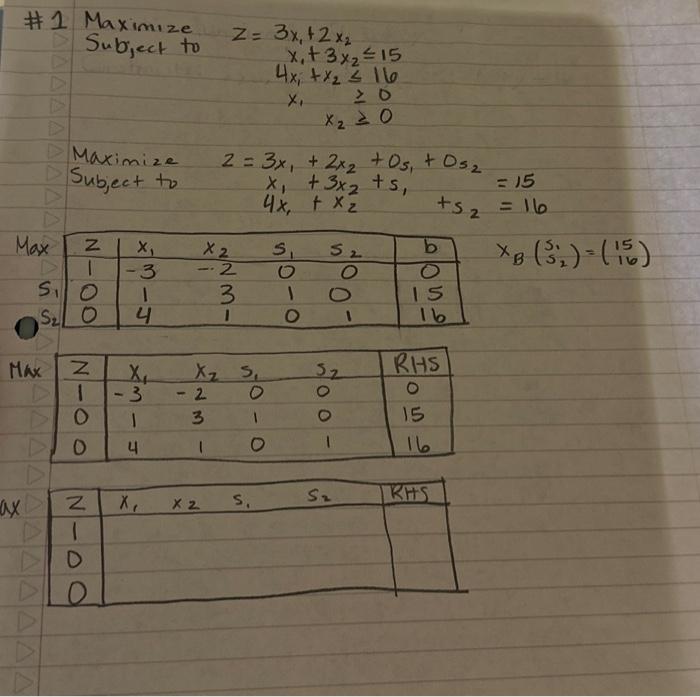 #1 Maximize Z = 3x₁ + 2x₂
Subject to x₁ + 3x₂ ≤ 15
4x₁ + x₂ ≤ 16
x₁ ≥ 0
x₂ ≥ 0
Maximize Z = 3x₁ + 2x₂ + 0s₁ + 0s₂
Subject to x₁ + 3x₂ + s₁ = 15
4x₁ + x₂ + s₂ = 16
Max Z x₁ x₂ s₁ s₂ b x_B (s₁ s₂) = (15 16)
1 -3 -2 0 0 0
s₁ 0 1 3 1 0 15
s₂ 0 4 1 0 1 16
Max Z x₁ x₂ s₁ s₂ RHS
1 -3 -2 0 0 0
0 1 3 1 0 15
0 4 1 0 1 16
ax Z x₁ x₂ s₁ s₂ RHS
1
0
0